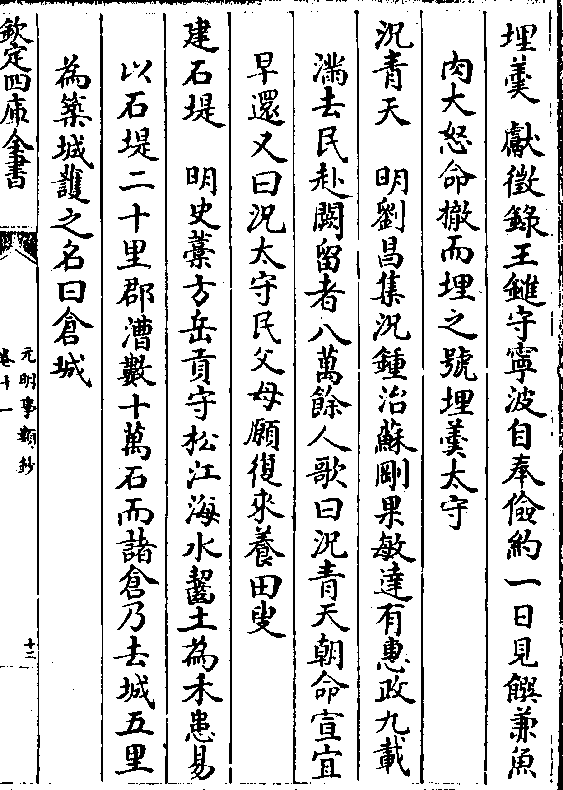 埋羮 獻徵錄王鏙守寧波自奉儉約一日見饌兼魚
肉大怒命撤而埋之號埋羮太守
況青天 明劉昌集況鍾治蘇剛果敏達有惠政九載
滿去民赴闕留者八萬餘人歌曰況青天朝命宣宜
早還又曰況太守民父母願復來養田叟
建石堤 明史藳方岳貢守松江海水齧土為禾患易
以石堤二十里郡漕數十萬石而諸倉乃去城五里
為築城護之名曰倉城
欽定四庫全書
元明事類鈔
卷十一
十三